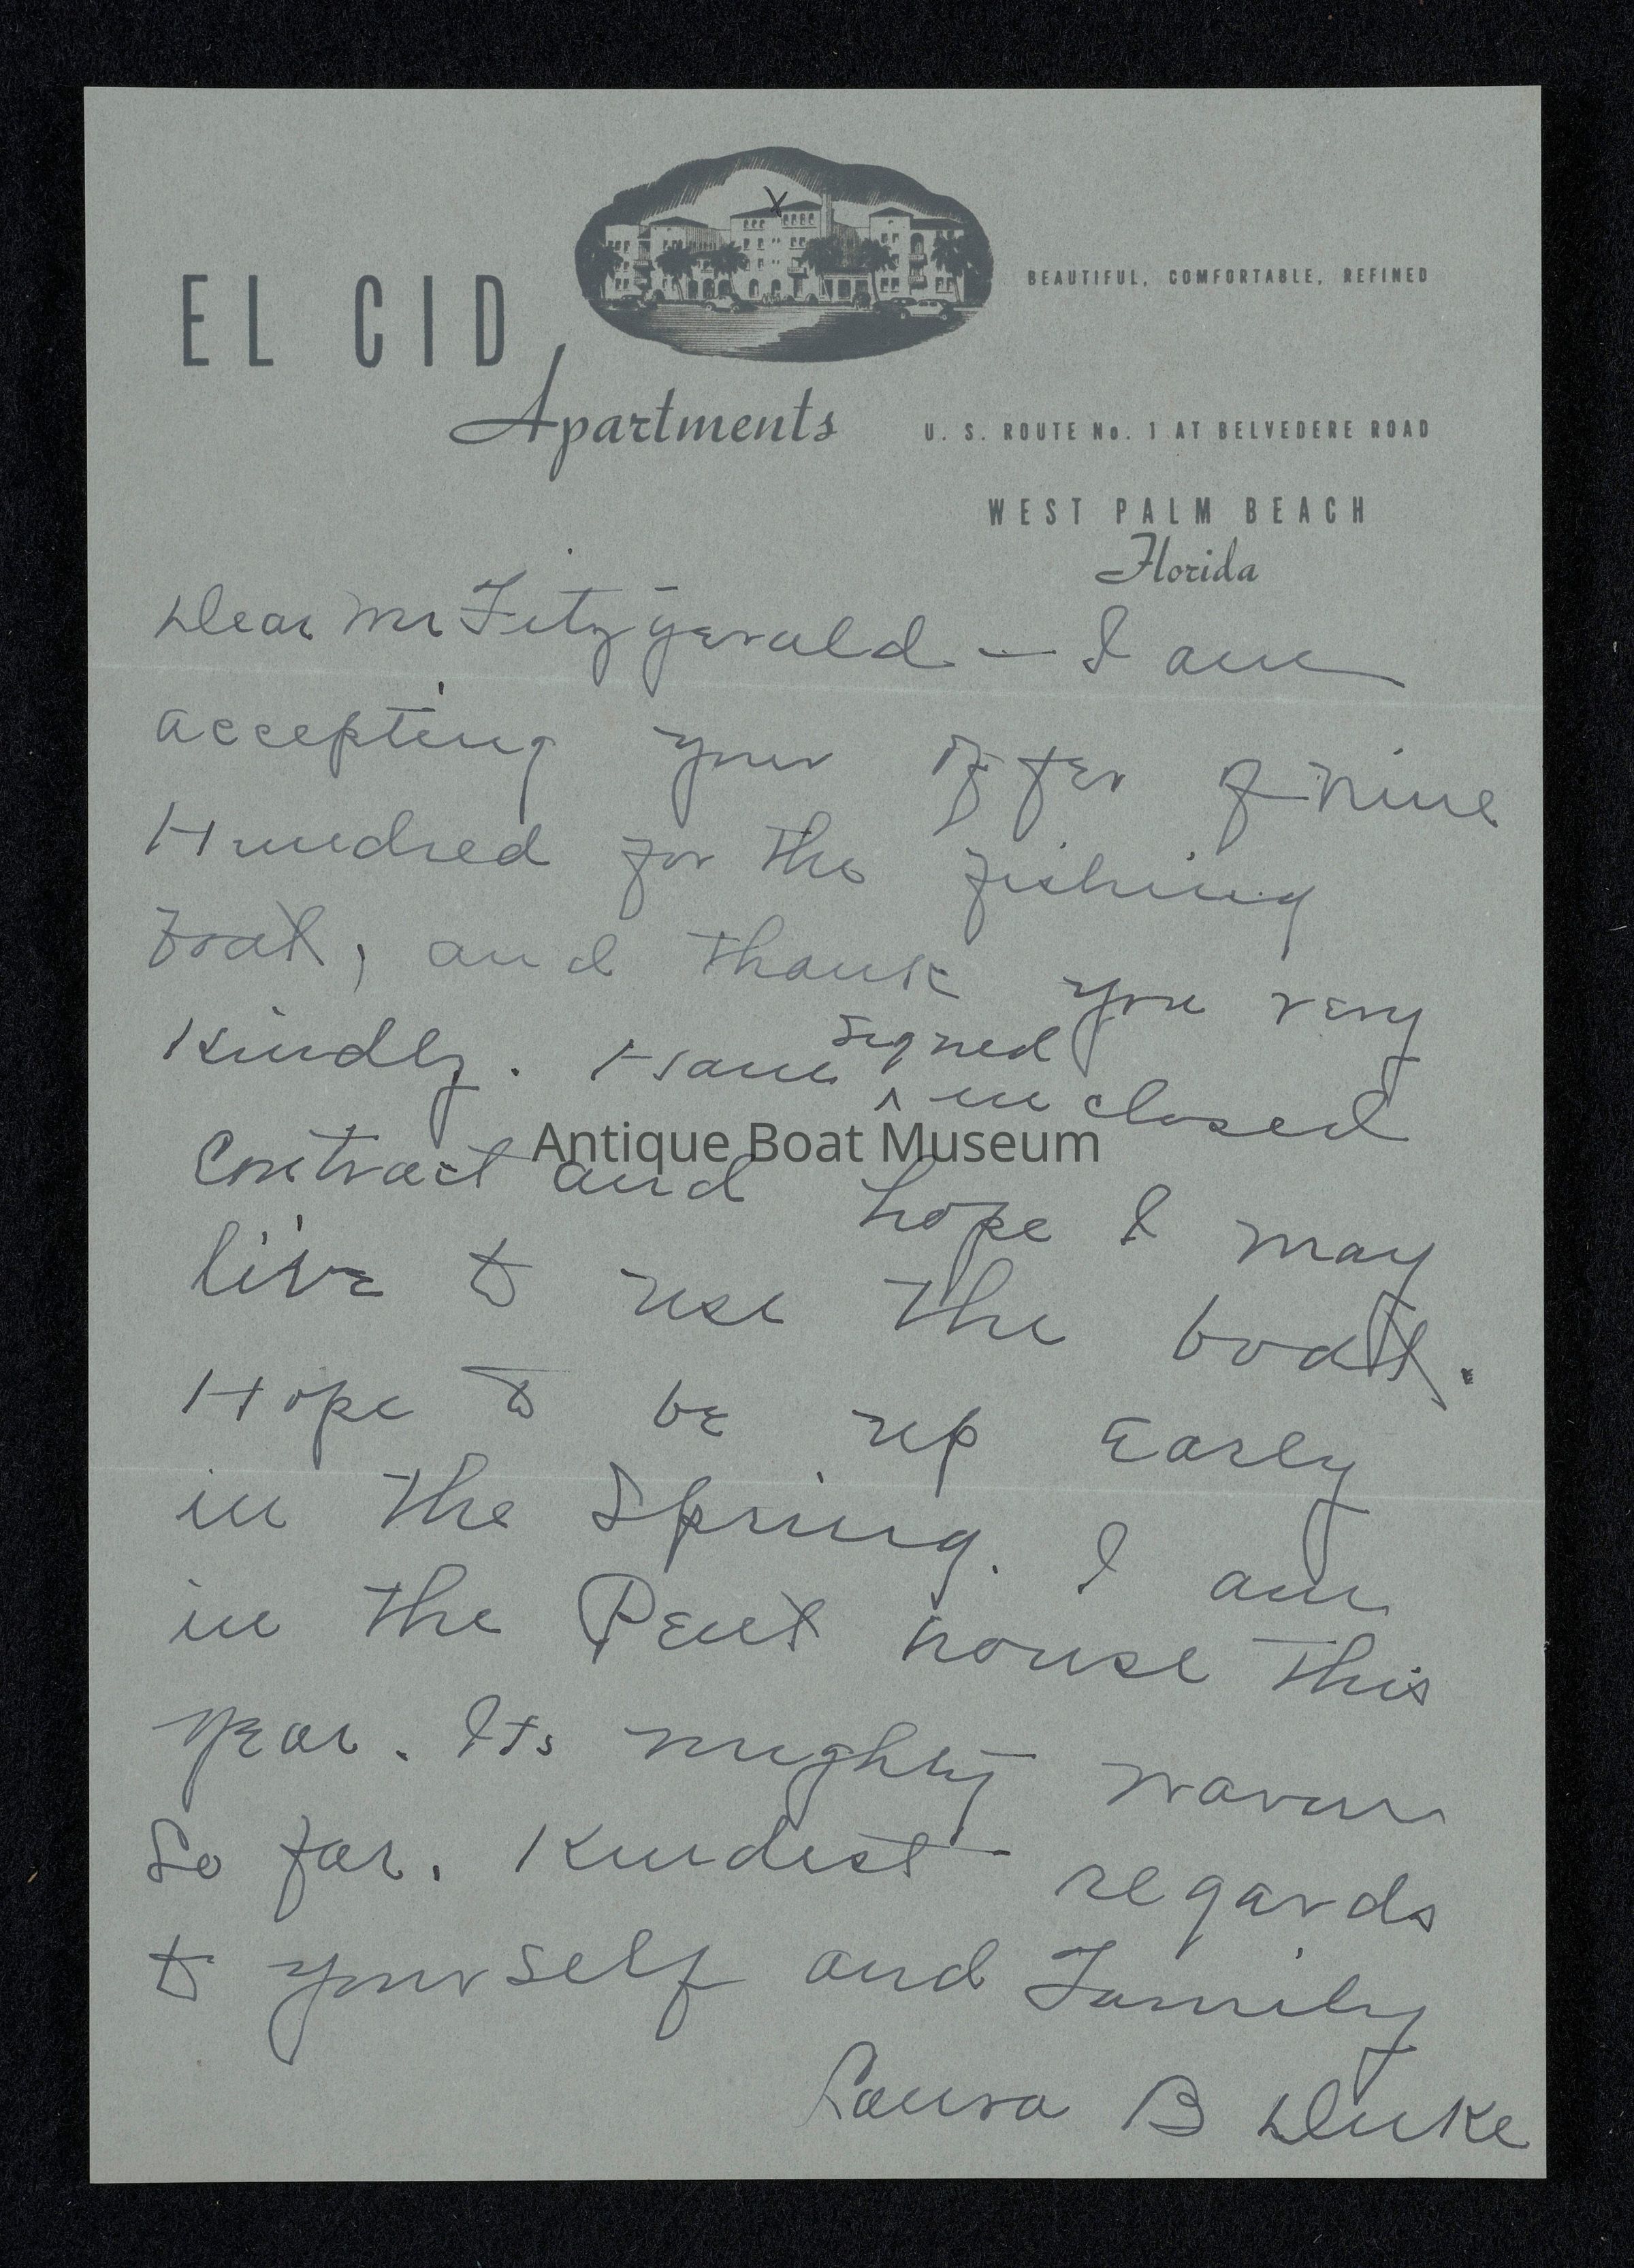 EL CID
X
BEAUTIFUL, COMFORTABLE, REFINED
Apartments
U. S. ROUTE No. 1 AT BELVEDERE ROAD
WEST PALM BEACH
Florida
Dear Mr Fitzgerald — I am
accepting your offer of nine
Hundred for the fishing
boat, and thank you very
Kindly. Have ^ signed inclosed
Contract and hope I may
live to use the boat.
Hope to be up Early
in the Spring. I am
in the Pent house this
year. Its mighty warm
So far. Kindest regards
to yourself and Family
Laura B Duke
Antique Boat Museum